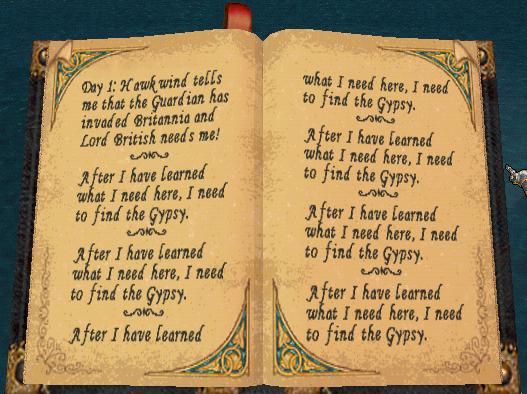 Day 1: Hawkwind tells
me that the Guardian has
invaded Britannia and
Lord British needs me!
After I have learned
what I need here, I need
to find the Gypsy.
After I have learned
what I need here, I need
to find the Gypsy.
After I have learned
what I need here, I need
to find the Gypsy.
After I have learned
what I need here, I need
to find the Gypsy.
After I have learned
what I need here, I need
to find the Gypsy.
After I have learned
what I need here, I need
to find the Gypsy.